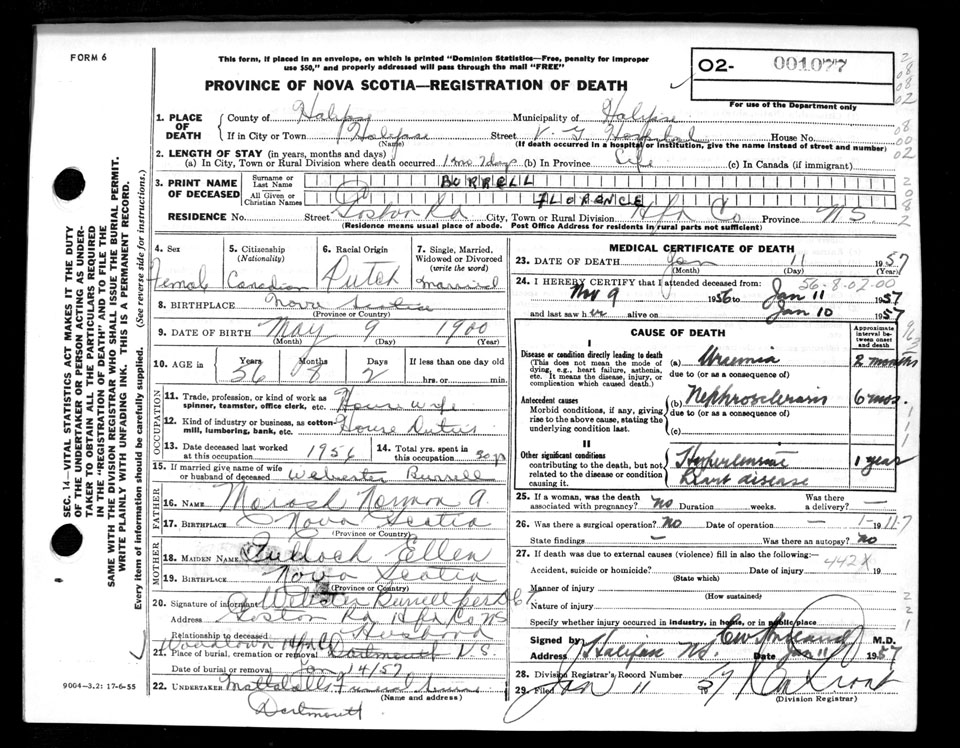 FORM 6
This form, if placed in an envelope, on which is printed "Dominion Statistics—Free, penalty for improper
use $50," and properly addressed will pass through the mail "FREE"
PROVINCE OF NOVA SCOTIA—REGISTRATION OF DEATH
O2- 001077
For use of the Department only
1. PLACE OF DEATH
County of Halifax Municipality of Halifax
If in City or Town Halifax Street V. G Hospital House No.
(Name) (If death occurred in a hospital or institution, give the name instead of street and number)
2. LENGTH OF STAY (in years, months and days)
(a) In City, Town or Rural Division where death occurred 1 mo 2 days (b) In Province Life (c) In Canada (if immigrant)
3. PRINT NAME OF DECEASED
Surname or Last Name BURRELL
All Given or Christian Names FLORENCE
RESIDENCE No. Street Preston Rd City, Town or Rural Division Hfx Co Province N S.
(Residence means usual place of abode. Post Office Address for residents in rural parts not sufficient)
4. Sex Female
5. Citizenship (Nationality) Canadian
6. Racial Origin Dutch
7. Single, Married, Widowed or Divorced (write the word) Married
8. BIRTHPLACE Nova Scotia
(Province or Country)
9. DATE OF BIRTH May 9 1900
(Month) (Day) (Year)
10. AGE in Years 56 Months 8 Days 2 If less than one day old
hrs. or min.
OCCUPATION
11. Trade, profession, or kind of work as spinner, teamster, office clerk, etc. House wife
12. Kind of industry or business, as cotton-mill, lumbering, bank, etc. House Duties
13. Date deceased last worked at this occupation 1956
14. Total yrs. spent in this occupation 30 yrs
15. If married give name of wife or husband of deceased Webster Burrell
FATHER
16. NAME Norman A.
17. BIRTHPLACE Nova Scotia
(Province or Country)
MOTHER
18. MAIDEN NAME Ellen
19. BIRTHPLACE Nova Scotia
(Province or Country)
20. Signature of informant Webster Burrell per
Address Preston Rd Hfx Co NS
Relationship to deceased Husband
21. Place of burial, cremation or removal Dartmouth N.S.
Date of burial or removal Jan 14/57
22. UNDERTAKER Mattatall
(Name and address)
Dartmouth
9004—3.2: 17-6-55
SEC. 14—VITAL STATISTICS ACT MAKES IT THE DUTY
OF THE UNDERTAKER OR PERSON ACTING AS UNDER-
TAKER TO OBTAIN ALL THE PARTICULARS REQUIRED
IN THE "REGISTRATION OF DEATH" AND TO FILE THE
SAME WITH THE DIVISION REGISTRAR WHO SHALL ISSUE THE BURIAL PERMIT.
WRITE PLAINLY WITH UNFADING INK. THIS IS A PERMANENT RECORD.
Every item of information should be carefully supplied. (See reverse side for instructions.)
MEDICAL CERTIFICATE OF DEATH
23. DATE OF DEATH Jan 11 1957
(Month) (Day) (Year)
56-8-02.00
24. I HEREBY CERTIFY that I attended deceased from
Nov 9 1956 to Jan 11 1957
and last saw her alive on Jan 10 1957
CAUSE OF DEATH
Approximate interval between onset and death
I
Disease or condition directly leading to death
(This does not mean the mode of dying, e.g., heart failure, asthenia, etc. It means the disease, injury, or complication which caused death.)
(a) Uremia 2 months
due to (or as a consequence of)
Antecedent causes
Morbid conditions, if any, giving rise to the above cause, stating the underlying condition last.
(b) Nephrosclerosis 6 mos.
due to (or as a consequence of)
(c)
II
Other significant conditions
contributing to the death, but not related to the disease or condition causing it.
Hypertensive heart disease 1 year
25. If a woman, was the death associated with pregnancy? No Duration — weeks. Was there a delivery? —
26. Was there a surgical operation? No Date of operation — 19
State findings — Was there an autopsy? no
27. If death was due to external causes (violence) fill in also the following:—
442X
Accident, suicide or homicide? Date of injury 19
(State which)
Manner of injury
(How sustained)
Nature of injury
Specify whether injury occurred in industry, in home, or in public place
Signed by M.D.
Address Halifax NS. Date Jan 11 1957
28. Division Registrar's Record Number
29. Filed Jan 11 1957
(Division Registrar)